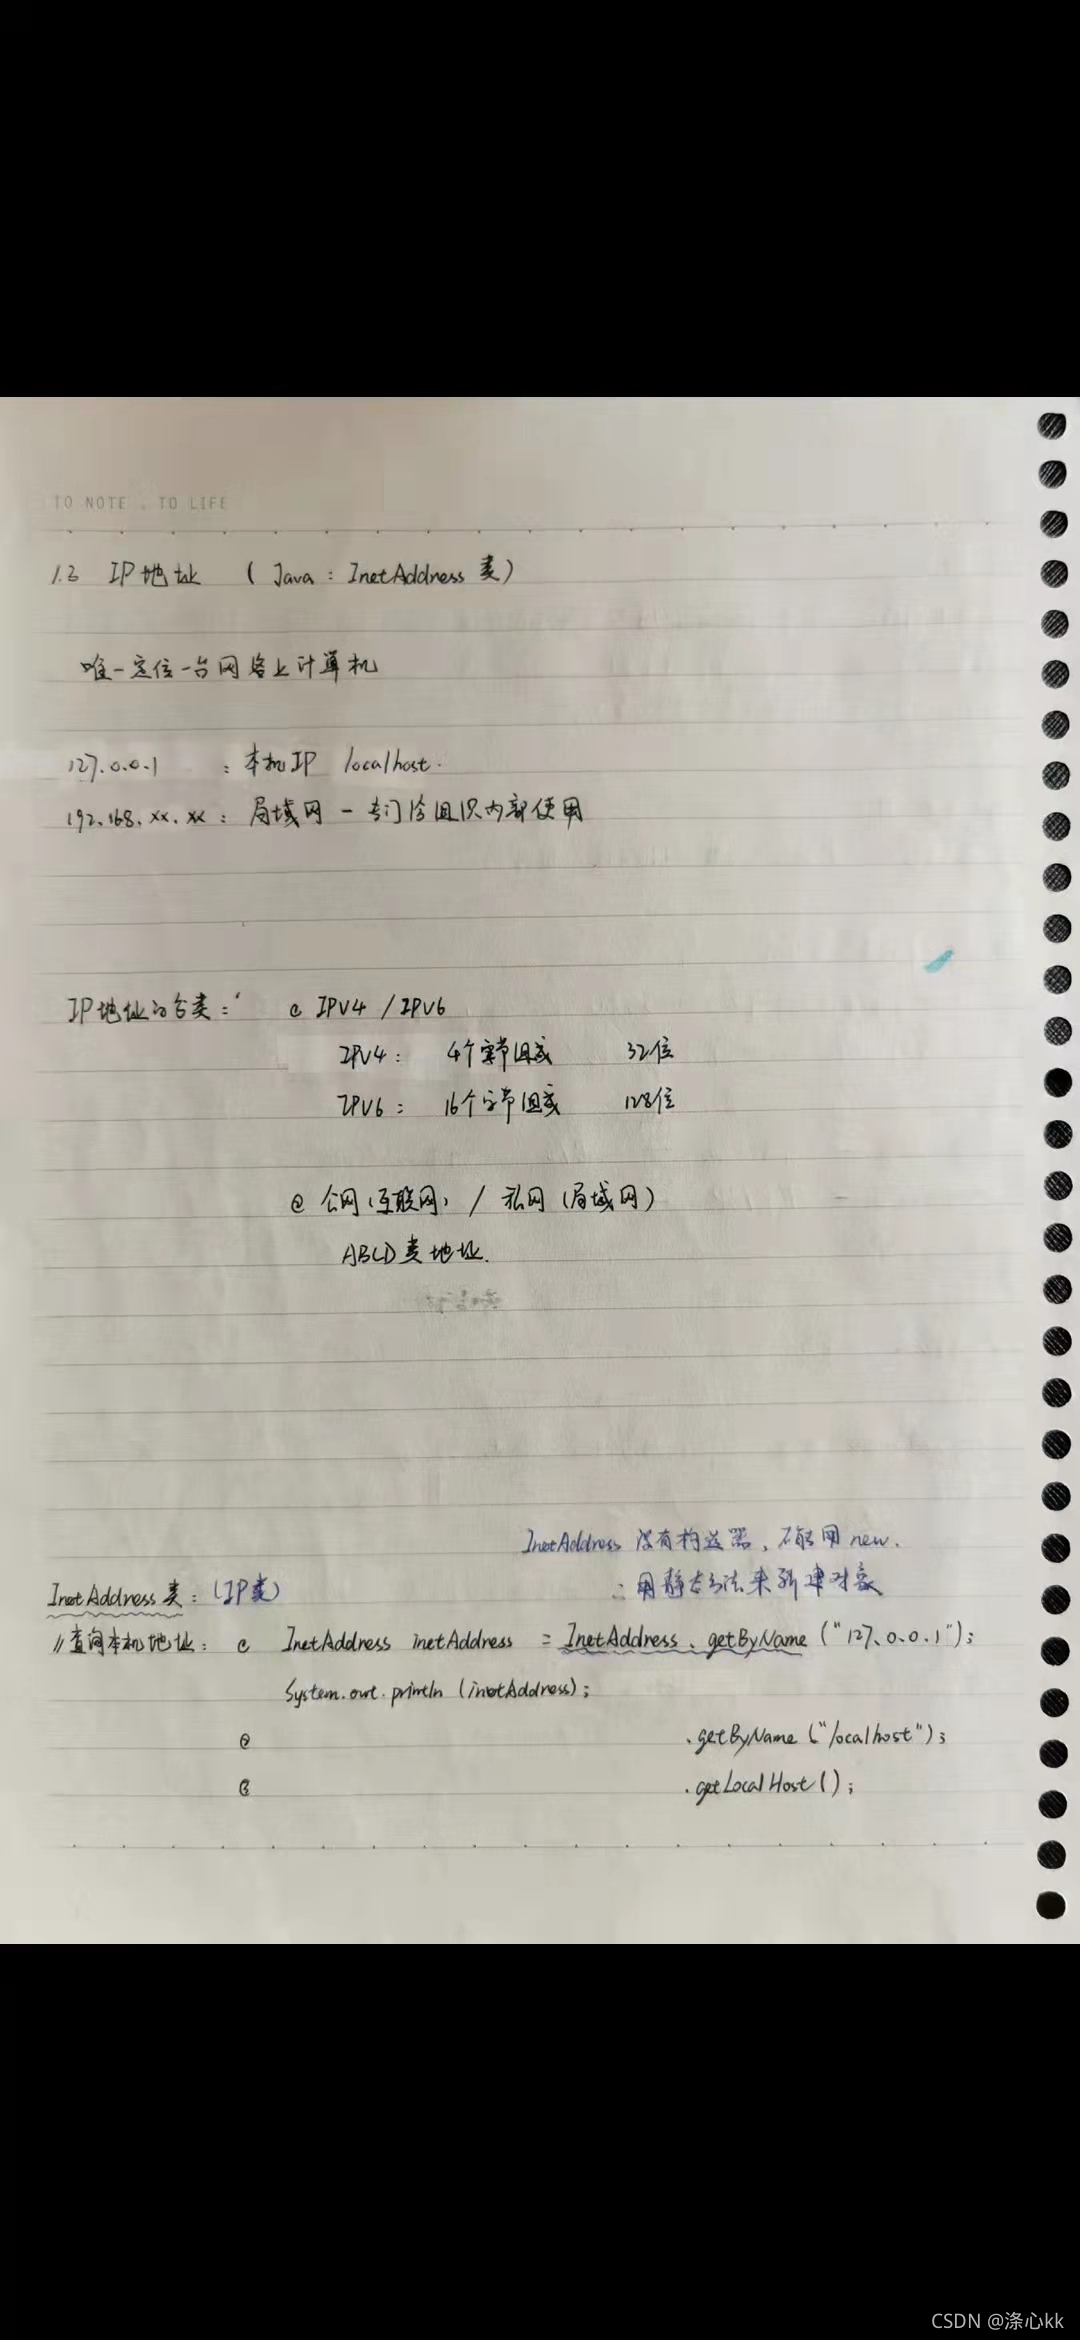 TO NOTE . TO LIFE
1.3 IP地址 ( Java : InetAddress 类)
唯一定位一台网络上计算机
127.0.0.1 : 本机IP localhost.
192.168.xx.xx : 局域网 - 专门给组织内部使用
IP地址的分类: ① IPV4 / IPV6
IPV4 : 4个字节组成 32位
IPV6 : 16个字节组成 128位
② 公网(互联网) / 私网(局域网)
ABCD类地址.
InetAddress 没有构造器, 不能用 new.
∴ 用静态方法来新建对象
InetAddress 类: (IP类)
//查询本机地址: ① InetAddress inetAddress = InetAddress.getByName("127.0.0.1");
System.out.println(inetAddress);
② .getByName("localhost");
③ .getLocalHost();
CSDN @涤心kk